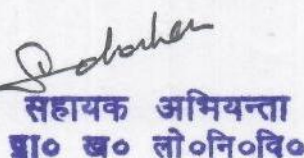 सहायक अभियन्ता
प्रा० ख० लो०नि०वि०